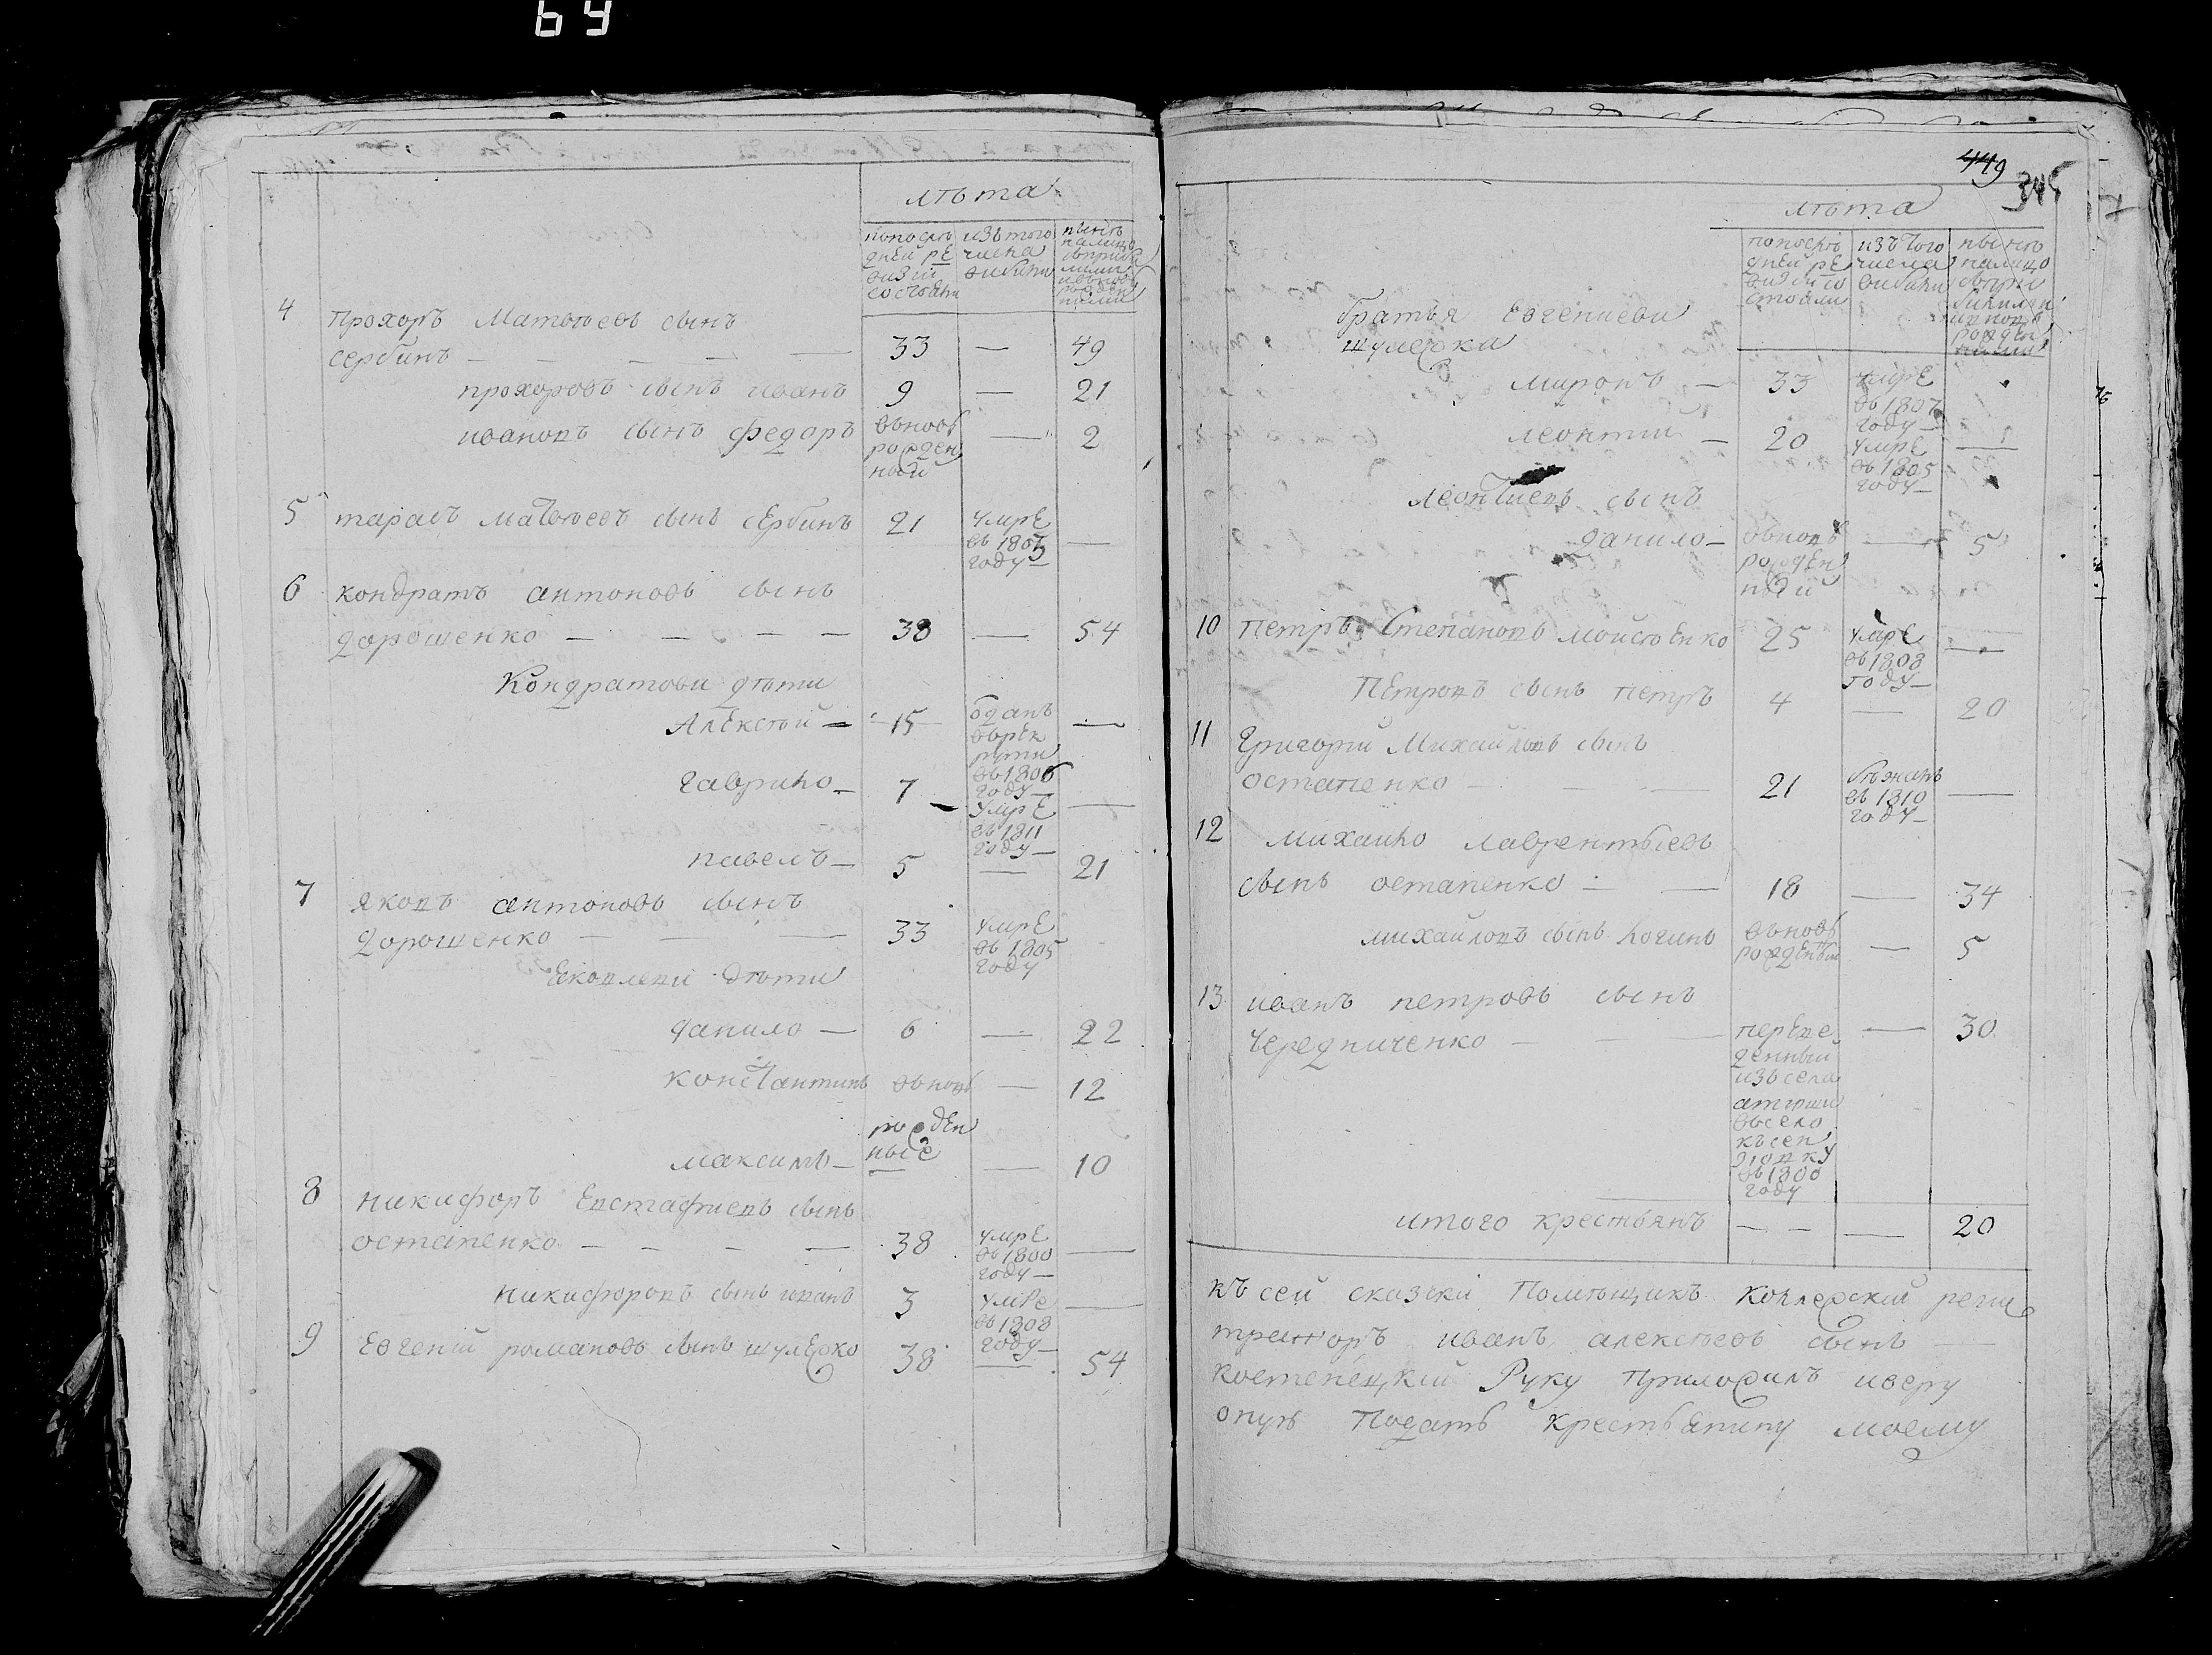 69
лѣта
попослѣ изъ того нынѣ
дней ре числа налицо
визіи выбыли
состояли
4
Прохоръ Матвѣевъ сынъ
сербинъ — 33 — 49
прохоровъ сынъ иванъ 9 — 21
ивановъ сынъ федоръ вьновь рожден ный — 2
5 тарасъ Матвѣевъ сынъ сербинъ 21 умре въ 1807 году —
6 кондратъ антоновъ сынъ
дорошенко — 38 — 54
Кондратови дѣти
Алексѣй — 15 оданъ врек рути въ 1806 году —
гаврило — 7 умре въ 1811 году —
павелъ — 5 — 21
7 яковъ антоновъ сынъ
дорошенко — 33 умре въ 1805 году
Яковлеви дѣти
данило — 6 — 22
константинъ вьновь — 12
рожден
максимъ — ные — 10
8 никифоръ Евстафиевъ сынъ
остапенко — 38 умре въ 1800 году —
никифоровъ сынъ иванъ 3 умре въ 1808 году —
9 Евгений романовъ сынъ шулежко 38 — 54
449
345
лѣта
попослѣ изъ того нынѣ
дней ре числа налицо
визіи со выбыли
стояли
братья Евгениеви
шулежки
миронъ — 33 умре въ 1807 году —
леонтий — 20 умре въ 1805 году —
леонтиевъ сынъ
данило — вьновь рожден ный — 5
10 Петръ Степановъ мойсѣенко 25 умре въ 1808 году —
Петровъ сынъ петръ 4 — 20
11 Григорий Михайловъ сынъ
остапенко — 21 бѣжалъ въ 1810 году —
12 михайло лаврентьевъ
сынъ остапенко — 18 — 34
михайловъ сынъ логинъ вьновь рожденый — 5
13 иванъ петровъ сынъ
Чередниченко — переве — 30
денный
изъ села
въ 1800
году
итого крестьянъ — — — 20
къ сей сказки Помѣщикъ коллежский реги
траторъ иванъ алексѣевъ сынъ —
костенецкий Руку Приложилъ иверу
онуя Подать крестьянину моему